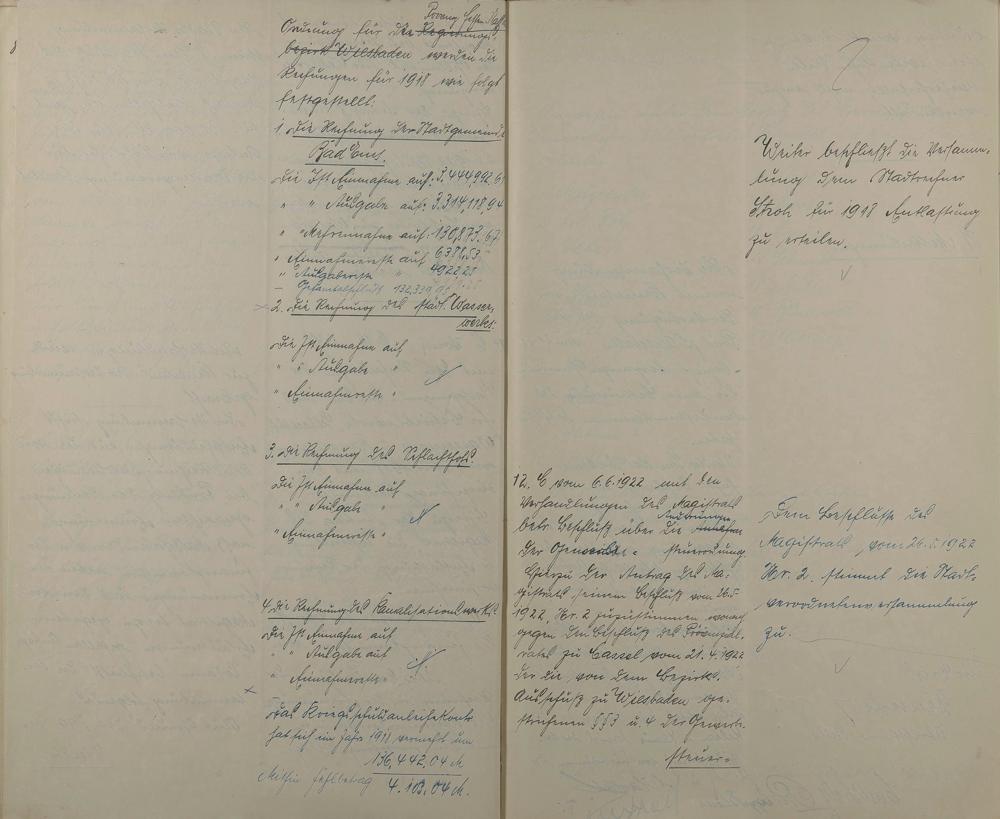 8
Provinz Hessen Nass.
Ordnung für die Regierungs-
bezirk Wiesbaden werden die
Rechnungen für 1918 wie folgt
festgestellt:
1. Die Rechnung der Stadtgemeinde
Bad Ems.
Die Ist Einnahme auf: 3.444,992,61
" " Ausgabe auf: 3.314,118,94
" " Mehreinnahme auf: 130,873,67
" Einnahmereste auf 6388,53
" Ausgabereste " 4922,25
— Gesamtabschluß 132,339,95
2. Die Rechnung des städt. Wasser-
werkes:
Die Ist Einnahme auf
" " Ausgabe "
" Einnahmereste "
3. Die Rechnung des Schlachthofs.
Die Ist Einnahme auf
" " Ausgabe "
" Einnahmereste "
4. Die Rechnung des Kanalisationswerks.
Die Ist Einnahme auf
" " Ausgabe auf
" Einnahmereste "
Das Kriegsschuldanleihekonto
hat sich im Jahre 1918 vermehrt um
136,442,04 M
Mithin Fehlbetrag 4.103,04 M.
12. E vom 6.6.1922 mit den
Verhandlungen des Magistrats
betr. Beschluß über die
der Gewerbe-steuerordnung.
Hierzu der Antrag des Ma-
gistrats seinem Beschluß vom 26.5.
1922, Nr. 2 zuzustimmen wonach
gegen den Beschluß des Provinzial-
rates zu Cassel, vom 21.4.1922
der die, von dem Bezirks-
Ausschuß zu Wiesbaden ge-
strichenen §§3 u. 4 der Gewerbe-
steuer-
Weiter beschließt die Versamm-
lung dem Stadtrechner
Stroh für 1918 Entlastung
zu erteilen.
Dem Beschlusse des
Magistrats, vom 26.5.1922
Nr. 2. stimmt die Stadt-
verordnetenversammlung
zu.